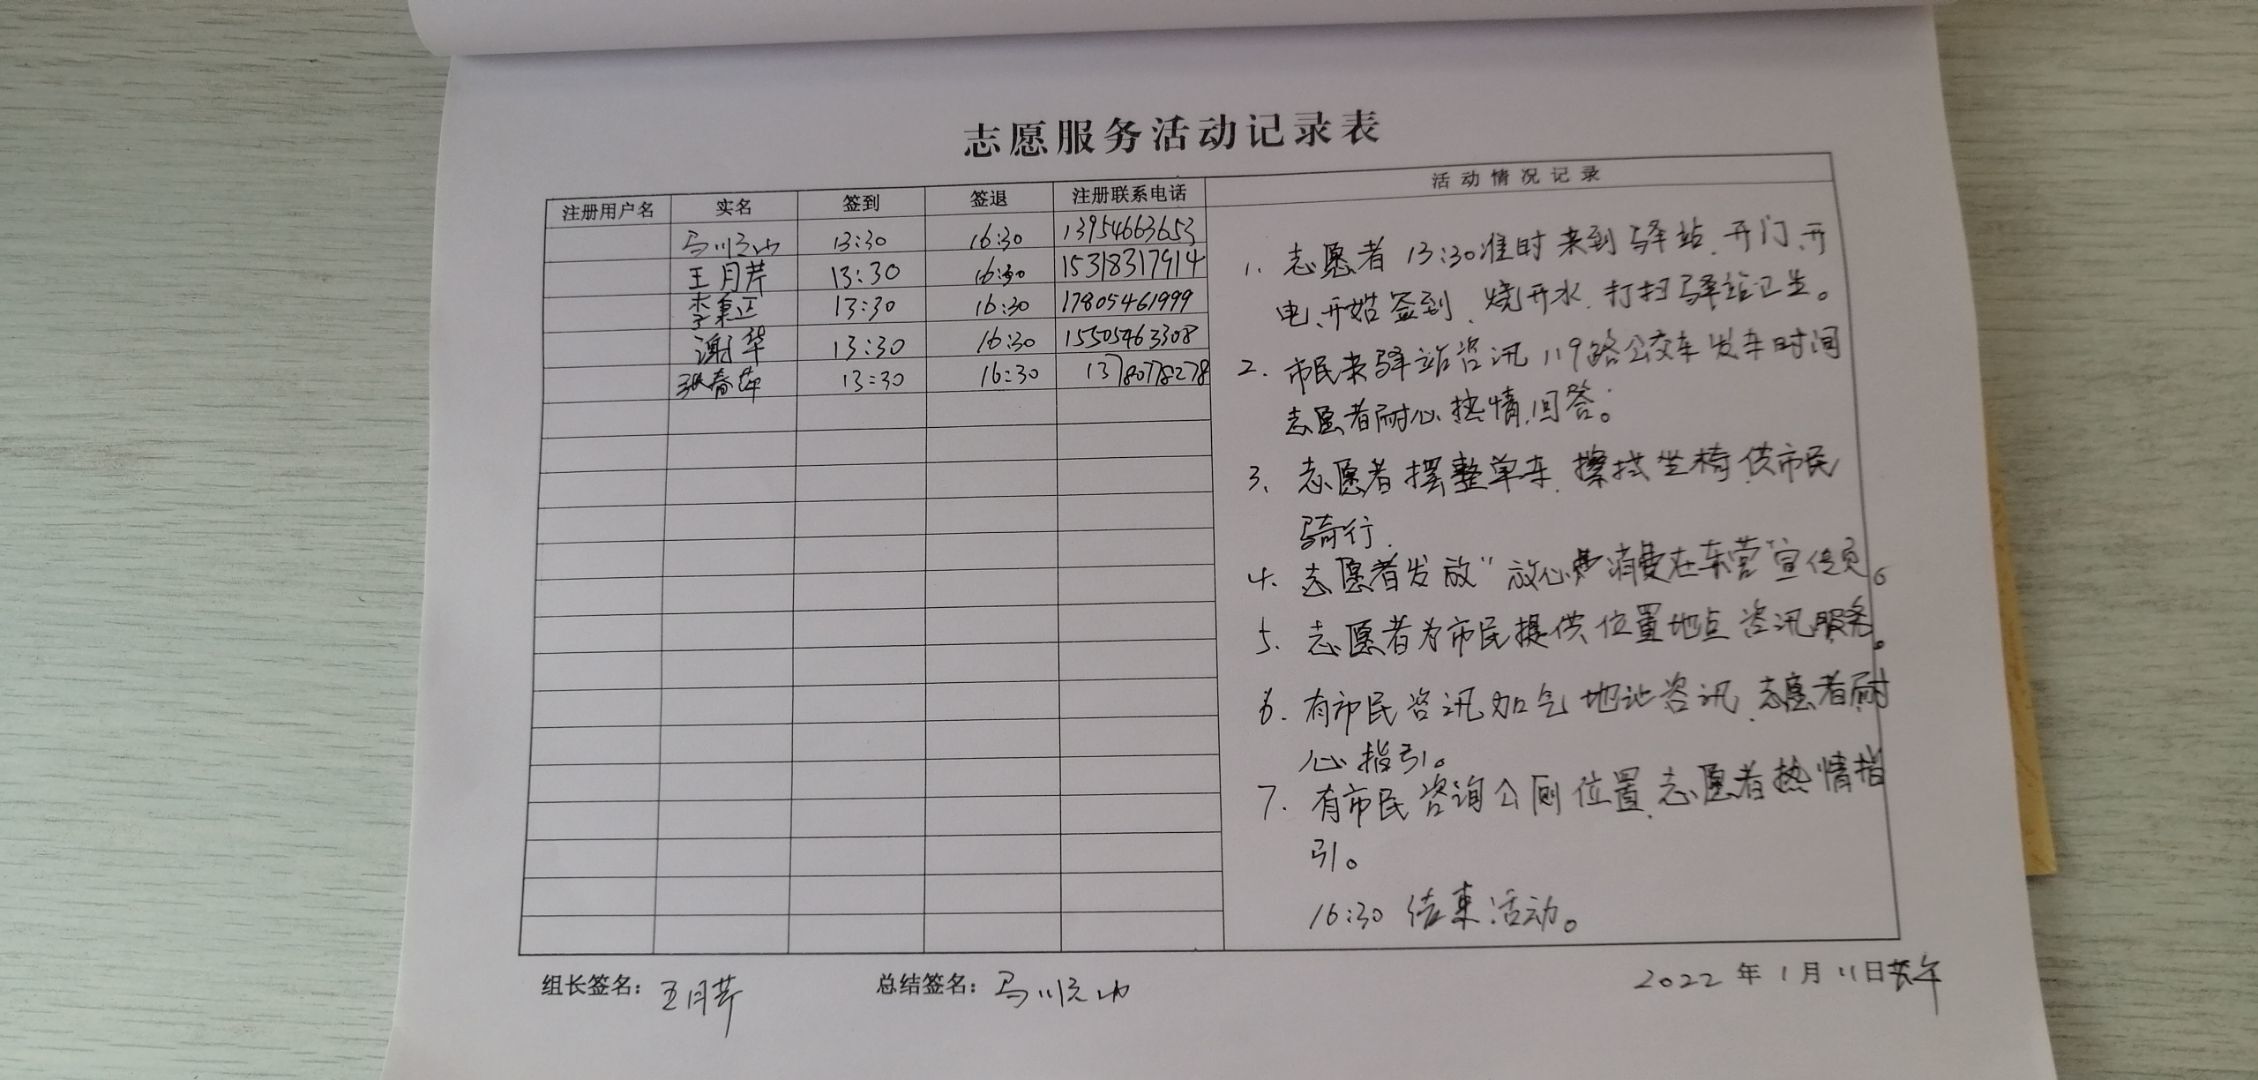 志愿服务活动记录表
注册用户名 实名 签到 签退 注册联系电话 活动情况记录
马 13:30 16:30 13954663653
王月芹 13:30 16:30 15318317914
李秉正 13:30 16:30 17805461999
谢华 13:30 16:30 15505463308
张春萍 13:30 16:30 13780778278
1. 志愿者13:30准时来到驿站、开门、开
电、开始签到、烧开水、打扫驿站卫生。
2. 市民来驿站咨讯119路公交车发车时间
志愿者耐心热情回答。
3、志愿者摆整单车、擦拭坐椅供市民
骑行.
4. 志愿者发放"放心消费在东营"宣传页。
5、志愿者为市民提供位置地点咨讯服务。
6. 有市民咨讯加气地址咨讯、志愿者耐
心指引。
7. 有市民咨询公厕位置、志愿者热情指
引。
16:30 结束活动。
组长签名：王月芹 总结签名：马 2022年1月11日下午